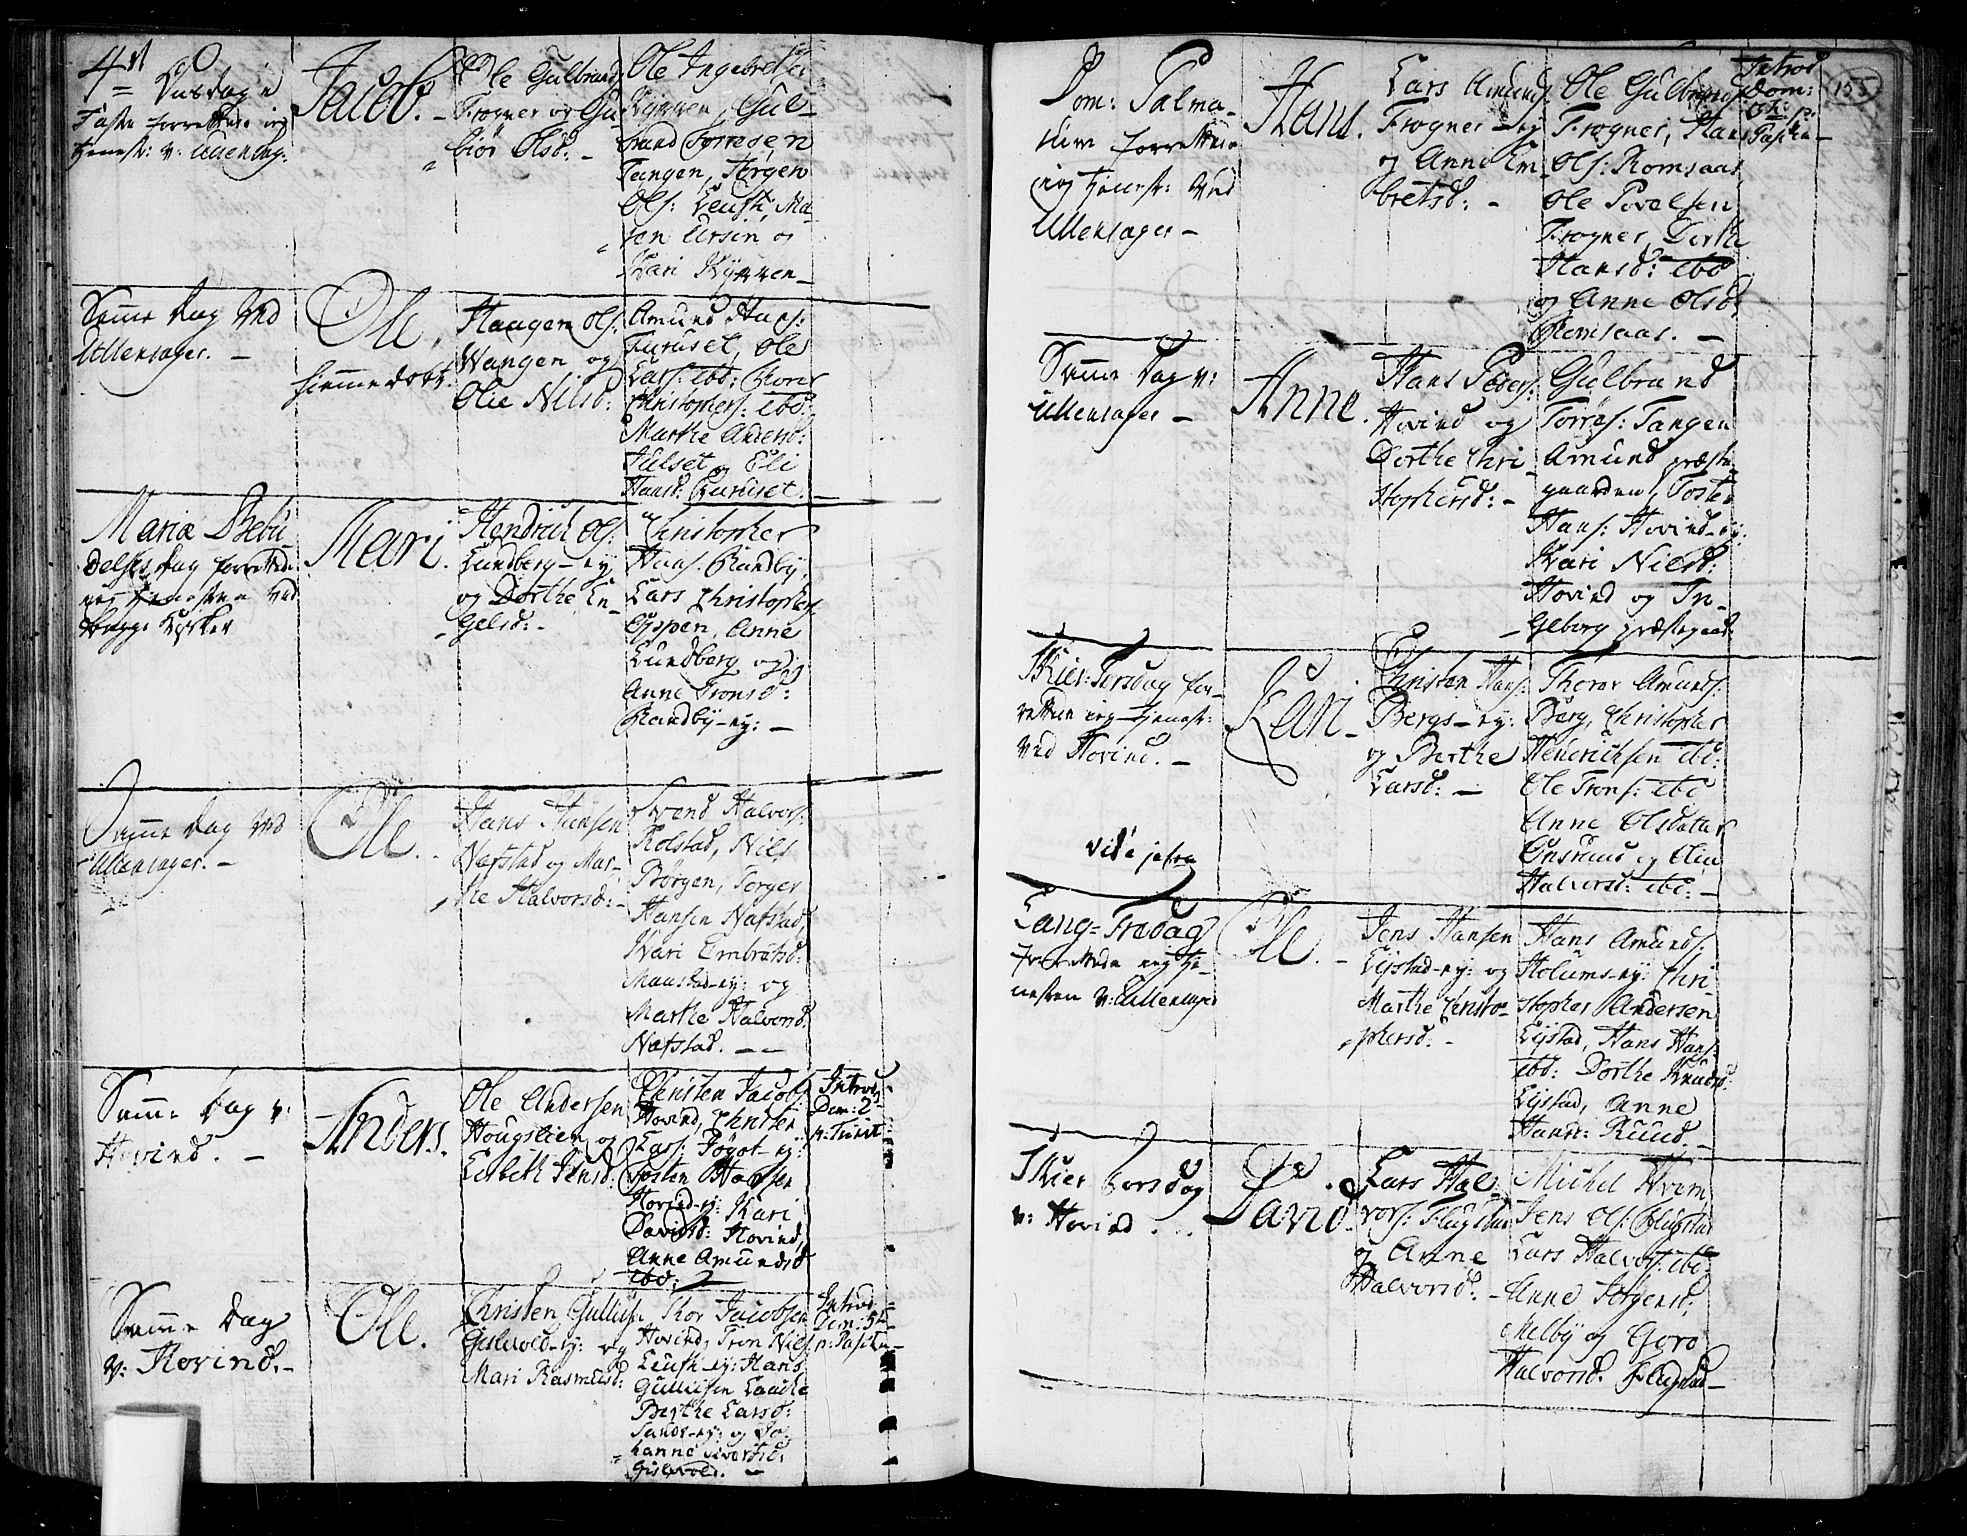 4de Onsdag i
Faste forrettede ieg
tjenest: v: Ullensag:
Jacob.
Ole Gulbrands:
Frogner og Gu-
biør Olsd: -
Ole Ingebretsen
Kÿxxen, Gul-
brand Torresen
Tangen, Jørgen
Ols:
og
Kari Kÿxxen -
Samme Dag ved
Ullensager. -
Ole,
hiemmedøbt.
Haagen Ols:
Wangen og
Olie Nilsd:
Amund Hans:
Furuset, Ole
Lars: ibd:
Christophers: ibd:
Marthe Andersd:
Julset og Eli
Hansd: Furuset. -
Mariæ Bebu-
delses Dag forrettede
ieg tjenesten ved
begge Kirker
Mari.
Hendrich Ols:
Lundberg-ey
og Dorthe En-
gelsd: -
Christopher
Hans: Randby,
Lars Christophers:
Espen, Anne
Lundberg og
Anne Tronsd:
Randby-ey: -
Samme Dag ved
Ullensager. -
Ole.
Hans Hansen
Nafstad og Mar-
the Halvorsd: -
Svend Halvors:
Rolstad, Nils
Børgen, Torger
Hansen Nafstad,
Kari Embretsd:
Maustad-ey: og
Marthe Halvorsd:
Nafstad. -
Samme Dag v:
Hovind. -
Anders.
Ole Andersen
Hougslien og
Lisbeth Jensd:
Christen Jacobs:
Hovind, Christen
Lars: Jøgot-ey:
Tosten Hansen
Hovind-ey: Kari
Davidsd: Hovind,
Anne Amundsd
ibd:
Introd:
Dom: 2
p: Trinit:
Samme Dag
v: Hovind. -
Ole.
Christen Gullius:
Gislevold-ey: og
Mari Rasmusd:
Thor Jacobsen
Hovind, Tron Nils:
-ey: Hans
Gulliksen Laache
Berthe Larsd:
Sande-ey: og Jo-
hanne Sivertsd:
Gislevold. -
Introd:
Dom: 5te
p: Paschæ -
155
Dom: Palma-
rum forrettede
ieg tjenest: ved
Ullensager -
Hans.
Lars Amunds:
Frogner-ey
og Anne Em-
bretsd: -
Ole Gulbrands:
Frogner, Hans
Ols: Romsaas
Ole Povelsen
Frogner, Dorthe
Hansd: ibd
og Anne Olsd:
Romsaas. -
Introd
Dom:
1
p:
Paschæ -
Samme Dag v:
Ullensager -
Anne.
Hans Peders:
Hovind og
Dorthe Chri-
stophersd: -
Gulbrand
Torres: Tangen
Amund præste-
gaarden, Tosten
Hans: Hovind-ey:
Kari Nilsd:
Hovind og In-
geborg præstegaard:
Skier-Torsdag for-
rettede ieg tjenest:
ved Hovind. -
Kari -
Christen Hans:
Bergs-ey:
og Berthe
Larsd: -
Thorer Amunds:
Berg, Christopher
Henrichsen ibd:
Ole Trons: ibd
Anne Olsdatter
og Elin
Halvorsd: ibd: -
vide infra
Lang-Fredag
forrettede ieg tje-
nesten v: Ullensager
Ole.
Jens Hansen
Eystad-ey: og
Marthe Christo-
phersd: -
Hans Amunds:
Holums-ey: Chri-
stopher Andersen
Eystad, Hans Hans:
ibd: Dorthe Knudsd:
Eystad, Anne
Hansd: Ruud. -
Skier Torsdag
v: Hovind.
David.
Lars Hal-
vors: Flugstad
og Anne
Halvorsd: -
Michel Hvam
Jens Ols: Flugstad
Lars Halvors: ibd:
Anne Jørgensd:
Melby og Goro
Halvorsd: Flugstad -